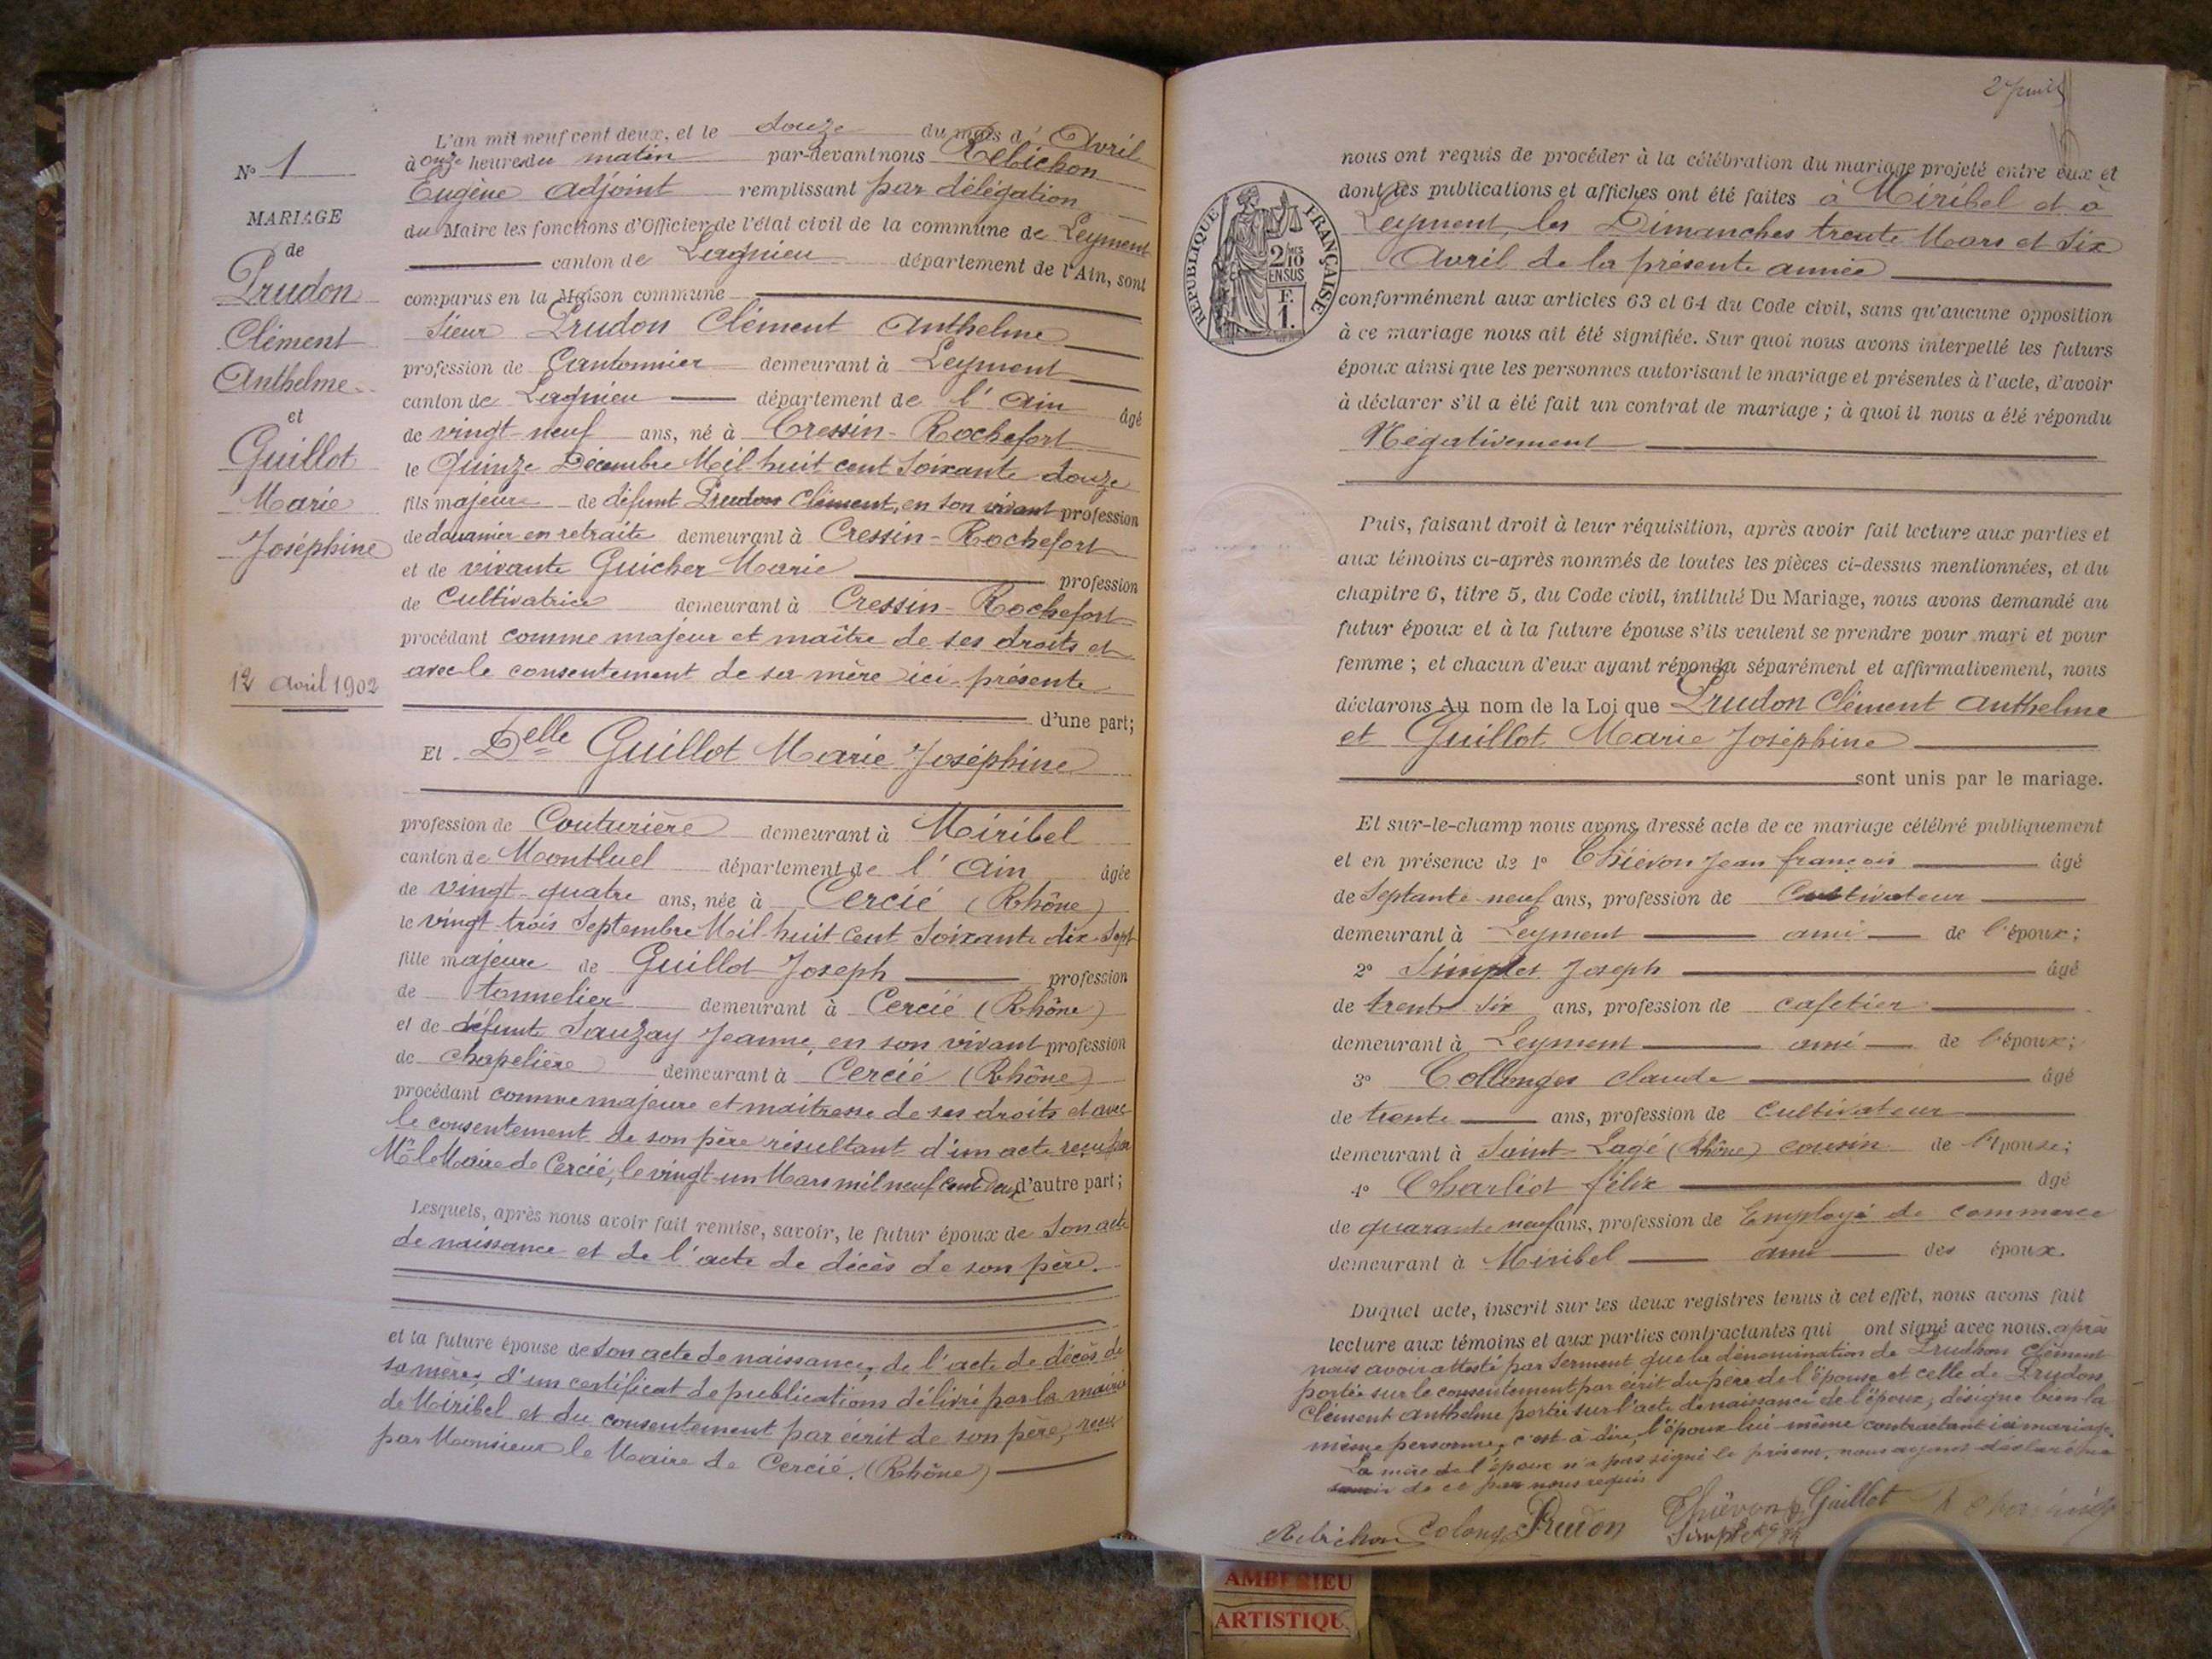 L'an mil neuf cent deux, et le douze du mois d' Avril
à onze heures du matin par-devant nous Rebichon
Eugène adjoint remplissant par délégation
du Maire les fonctions d'Officier de l'état civil de la commune de Leyment
canton de Lagnieu département de l'Ain, sont
comparus en la Maison commune
Sieur Prudon Clément Anthelme
profession de Cantonnier demeurant à Leyment
canton de Lagnieu département de l' Ain âgé
de vingt-neuf ans, né à Cressin-Rochefort
le Quinze Décembre Mil huit cent Soixante-douze
fils majeur de défunt Prudon Clément, en son vivant profession
de douanier en retraite demeurant à Cressin-Rochefort
et de vivante Guicher Marie profession
de Cultivatrice demeurant à Cressin-Rochefort
procédant comme majeur et maître de ses droits et
avec le consentement de sa mère ici présente
d'une part;
Et Delle Guillot Marie Joséphine
profession de Couturière demeurant à Miribel
canton de Montluel département de l' Ain âgée
de vingt-quatre ans, née à Cercié (Rhône)
le vingt-trois Septembre Mil huit cent Soixante dix-Sept
fille majeure de Guillot Joseph profession
de tonnelier demeurant à Cercié (Rhône)
et de défunte Sauzay Jeanne, en son vivant profession
de chapelière demeurant à Cercié (Rhône)
procédant comme majeure et maîtresse de ses droits et avec
le consentement de son père résultant d'un acte reçu par
Mr le Maire de Cercié, le vingt-un Mars mil neuf cent deux d'autre part;
Lesquels, après nous avoir fait remise, savoir, le futur époux de Son acte
de naissance et de l'acte de décès de son père.
et la future épouse de son acte de naissance, de l'acte de décès de
sa mère, d'un certificat de publications délivré par la mairie
de Miribel et du consentement par écrit de son père, reçu
par Monsieur le Maire de Cercié. (Rhône)
No 1
MARIAGE
de
Prudon
Clément
Anthelme
et
Guillot
Marie
Joséphine
12 avril 1902
RÉPUBLIQUE FRANÇAISE
2/10
EN SUS
F.
1.
nous ont requis de procéder à la célébration du mariage projeté entre eux et
dont les publications et affiches ont été faites à Miribel et à
Leyment, les Dimanches trente Mars et Six
Avril de la présente année
conformément aux articles 63 et 64 du Code civil, sans qu'aucune opposition
à ce mariage nous ait été signifiée. Sur quoi nous avons interpellé les futurs
époux ainsi que les personnes autorisant le mariage et présentes à l'acte, d'avoir
à déclarer s'il a été fait un contrat de mariage ; à quoi il nous a été répondu
Négativement
Puis, faisant droit à leur réquisition, après avoir fait lecture aux parties et
aux témoins ci-après nommés de toutes les pièces ci-dessus mentionnées, et du
chapitre 6, titre 5, du Code civil, intitulé Du Mariage, nous avons demandé au
futur époux et à la future épouse s'ils veulent se prendre pour mari et pour
femme ; et chacun d'eux ayant répondu séparément et affirmativement, nous
déclarons Au nom de la Loi que Prudon Clément Anthelme
et Guillot Marie Joséphine
sont unis par le mariage.
Et sur-le-champ nous avons dressé acte de ce mariage célébré publiquement
et en présence de 1o Thiévon Jean françois âgé
de Septante-neuf ans, profession de Cultivateur
demeurant à Leyment ami de l'époux;
2o Simplet Joseph âgé
de trente six ans, profession de cafetier
demeurant à Leyment ami de l'époux;
3o Collonges Claude âgé
de trente ans, profession de Cultivateur
demeurant à Saint-Lagé (Rhône) cousin de l'épouse;
4o Charliot félix âgé
de quarante neuf ans, profession de Employé de commerce
demeurant à Miribel ami des époux.
Duquel acte, inscrit sur les deux registres tenus à cet effet, nous avons fait
lecture aux témoins et aux parties contractantes qui ont signé avec nous, après
nous avoir attesté par serment que la dénomination de Prudhon Clément
portée sur le consentement par écrit du père de l'épouse et celle de Prudon
Clément Anthelme portée sur l'acte de naissance de l'époux, désigne bien la
même personne, c'est à dire, l'époux lui-même contractant ici mariage.
La mère de l'époux n'a pas signé le présent, nous ayant déclaré ne
savoir de ce par nous requis
Rebichon Colonge Prudon Thiévon Guillot
Simplet
AMBERIEU
ARTISTIQU